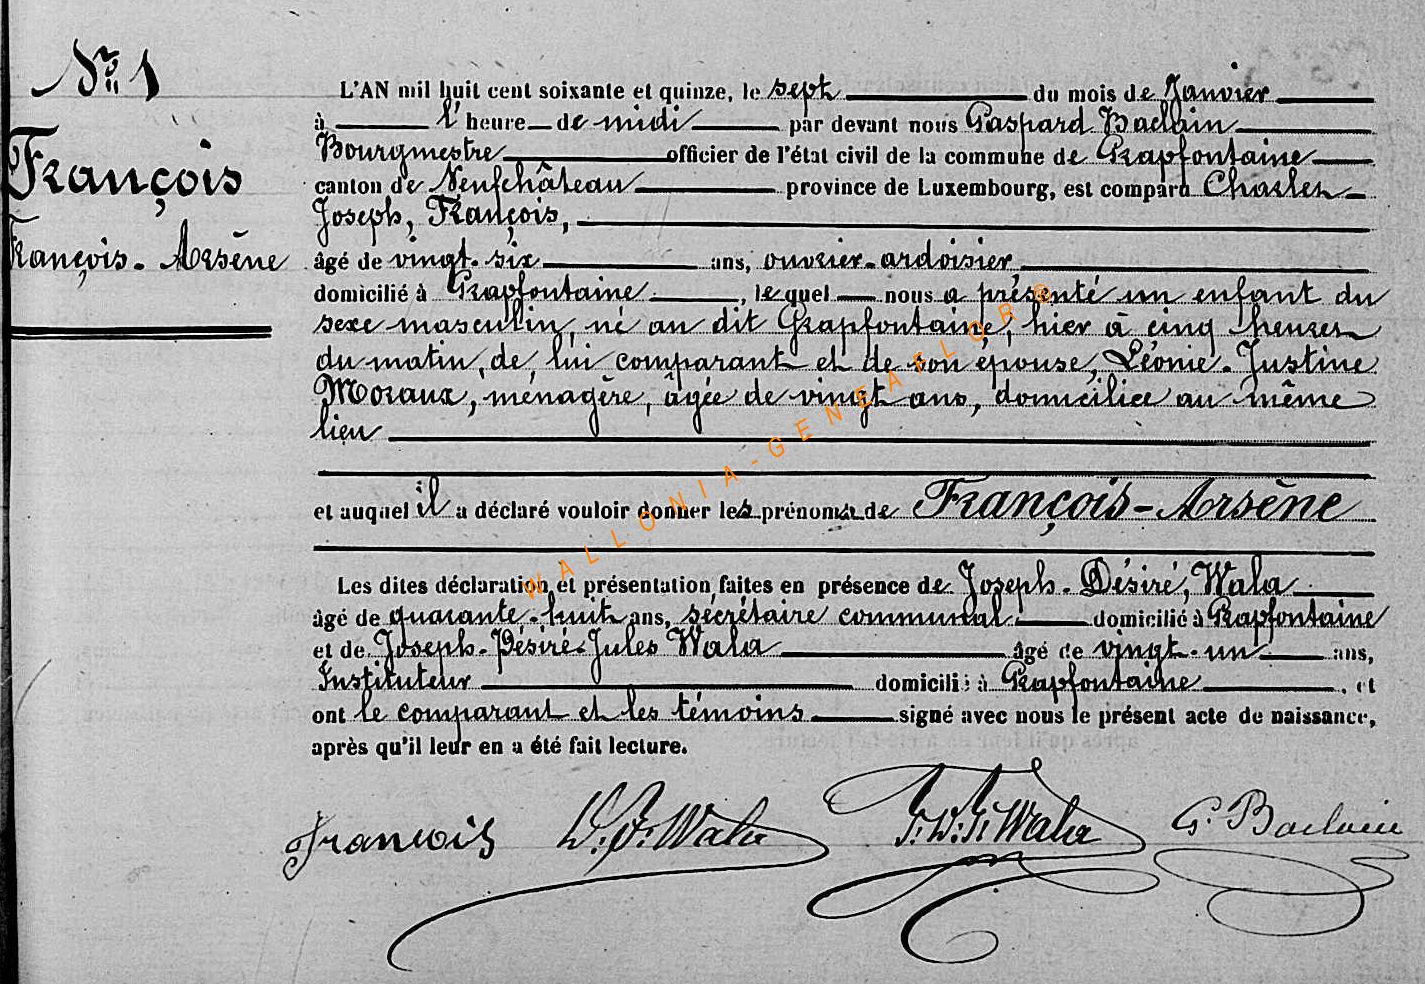 N° 1
François
François-Arsène
L'AN mil huit cent soixante et quinze, le sept du mois de Janvier
à l'heure de midi par devant nous Gaspard Baclain
Bourgmestre officier de l'état civil de la commune de Grapfontaine
canton de Neufchâteau province de Luxembourg, est comparu Charles
Joseph, François,
âgé de vingt-six ans, ouvrier-ardoisier,
domicilié à Grapfontaine, lequel nous a présenté un enfant du
sexe masculin, né au dit Grapfontaine, hier à cinq heures
du matin, de lui comparant et de son épouse, Léonie-Justine
Moraux, ménagère, âgée de vingt ans, domiciliée au même
lieu
et auquel il a déclaré vouloir donner les prénoms de François-Arsène
Les dites déclaration et présentation faites en présence de Joseph-Désiré, Wala
âgé de quarante-huit ans, secrétaire communal domicilié à Grapfontaine
et de Joseph-Désiré-Jules Wala âgé de vingt-un ans,
Instituteur domicilié à Grapfontaine, et
ont le comparant et les témoins signé avec nous le présent acte de naissance,
après qu'il leur en a été fait lecture.
François Wala Wala G. Baclain
WALLONIA-GENEAFLOR ©